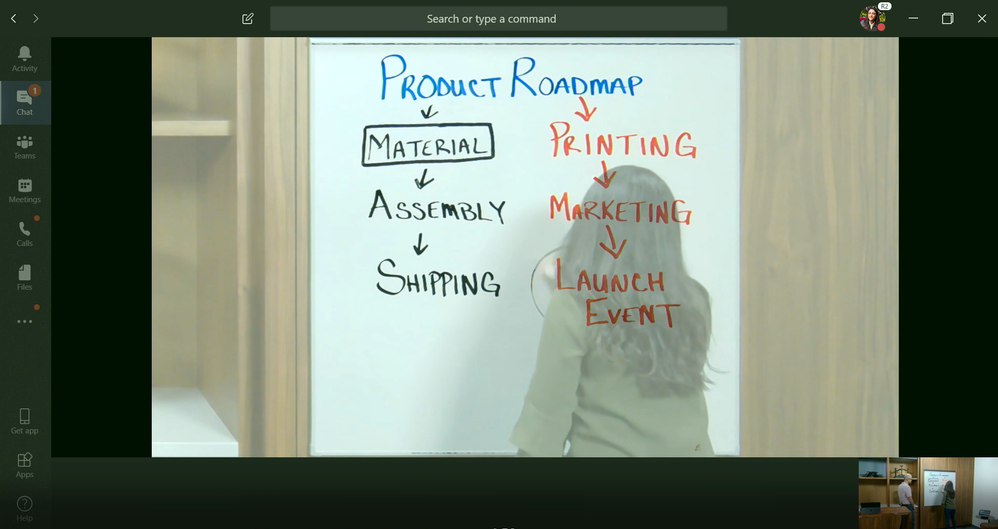 Search or type a command
R2
Activity
1
Chat
Teams
Meetings
Calls
Files
Get app
Apps
Help
PRODUCT ROADMAP
MATERIAL
ASSEMBLY
SHIPPING
PRINTING
MARKETING
LAUNCH
EVENT